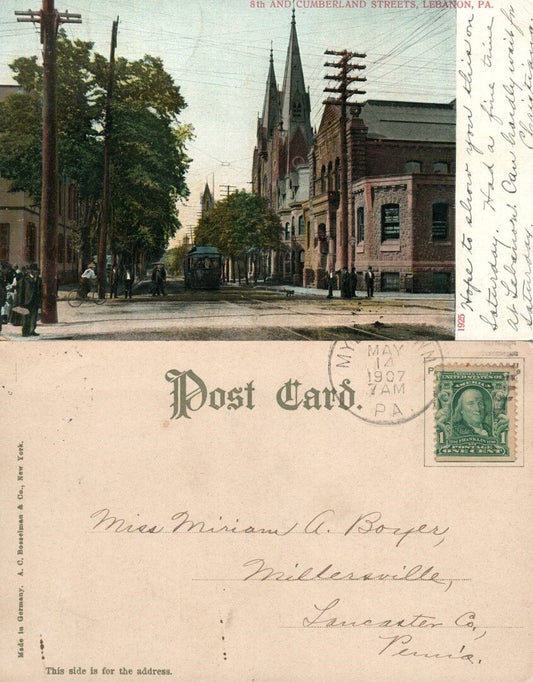 8th AND CUMBERLAND STREETS, LEBANON, PA.
Hope to show you this on
Saturday. Had a fine time
at Lebanon. Can hardly wait for
Saturday.
1925
Post Card.
MY
MAY
14
7AM
1907
PA
UNITED STATES OF AMERICA
FRANKLIN
1 POSTAGE 1
ONE CENT
Miss Miriam A. Boyer,
Millersville,
Lancaster Co.,
Penn'a.
Made in Germany. A. C. Bosselman & Co., New York.
This side is for the address.